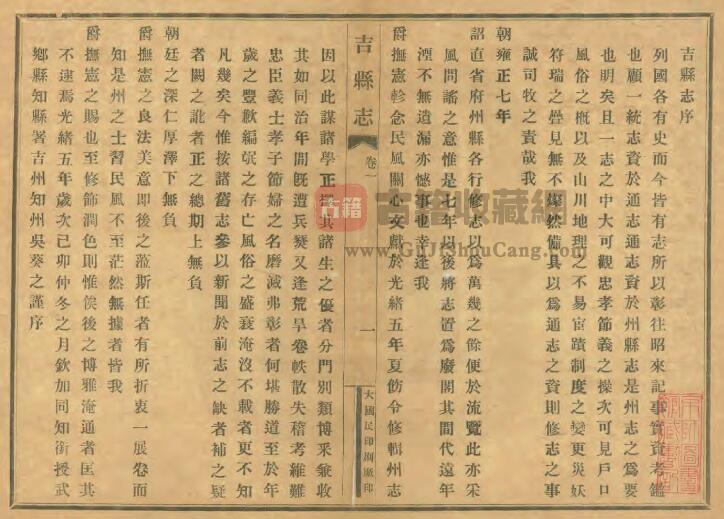 吉縣志序
列國各有史而今皆有志所以彰往昭來記事實資考鑑
也顧一統志資於通志通志資於州縣志是州志之爲要
也明矣且一志之中大可觀忠孝節義之操次可見戶口
風俗之槪以及山川地理之不易宦蹟制度之變更災妖
符瑞之疊見無不燦然備具以爲通志之資則修志之事
誠司牧之責哉我
朝雍正七年
詔直省府州縣各行修志以爲萬幾之餘便於流覽此亦采
風問謠之意惟是七年以後將志置爲廢閣其間代遠年
湮不無遺漏亦憾事也幸逢我
爵撫憲軫念民風關心文獻於光緒五年夏飭令修輯州志
吉縣志
卷一
一
大國民印刷厰印
因以此謀諸學正擇其諸生之優者分門別類博釆兼收
其如同治年間旣遭兵燹又逢荒旱卷帙散失稽考維難
忠臣義士孝子節婦之名磨滅弗彰者何堪勝道至於年
歲之豐歉編氓之存亡風俗之盛衰淹沒不載者更不知
凡幾矣今惟按諸舊志參以新聞於前志之缺者補之疑
者闕之訛者正之總期上無負
朝廷之深仁厚澤下無負
爵撫憲之良法美意即後之蒞斯任者有所折衷一展卷而
知是州之士習民風不至茫然無據者皆我
爵撫憲之賜也至修飾潤色則惟俟後之博雅淹通者匡其
不逮焉光緒五年歲次己卯仲冬之月欽加同知銜授武
鄉縣知縣署吉州知州吳葵之謹序
古籍
古籍收藏網
www.GuJiShouCang.com